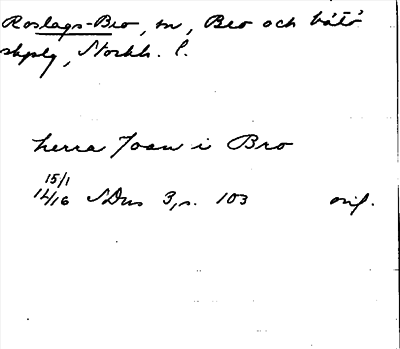 Roslags-Bro, sn, Bro och Vätö
skplg, Stockh. l.
herra Joan i Bro
15/1
1416 SDns 3, s. 103 orig.